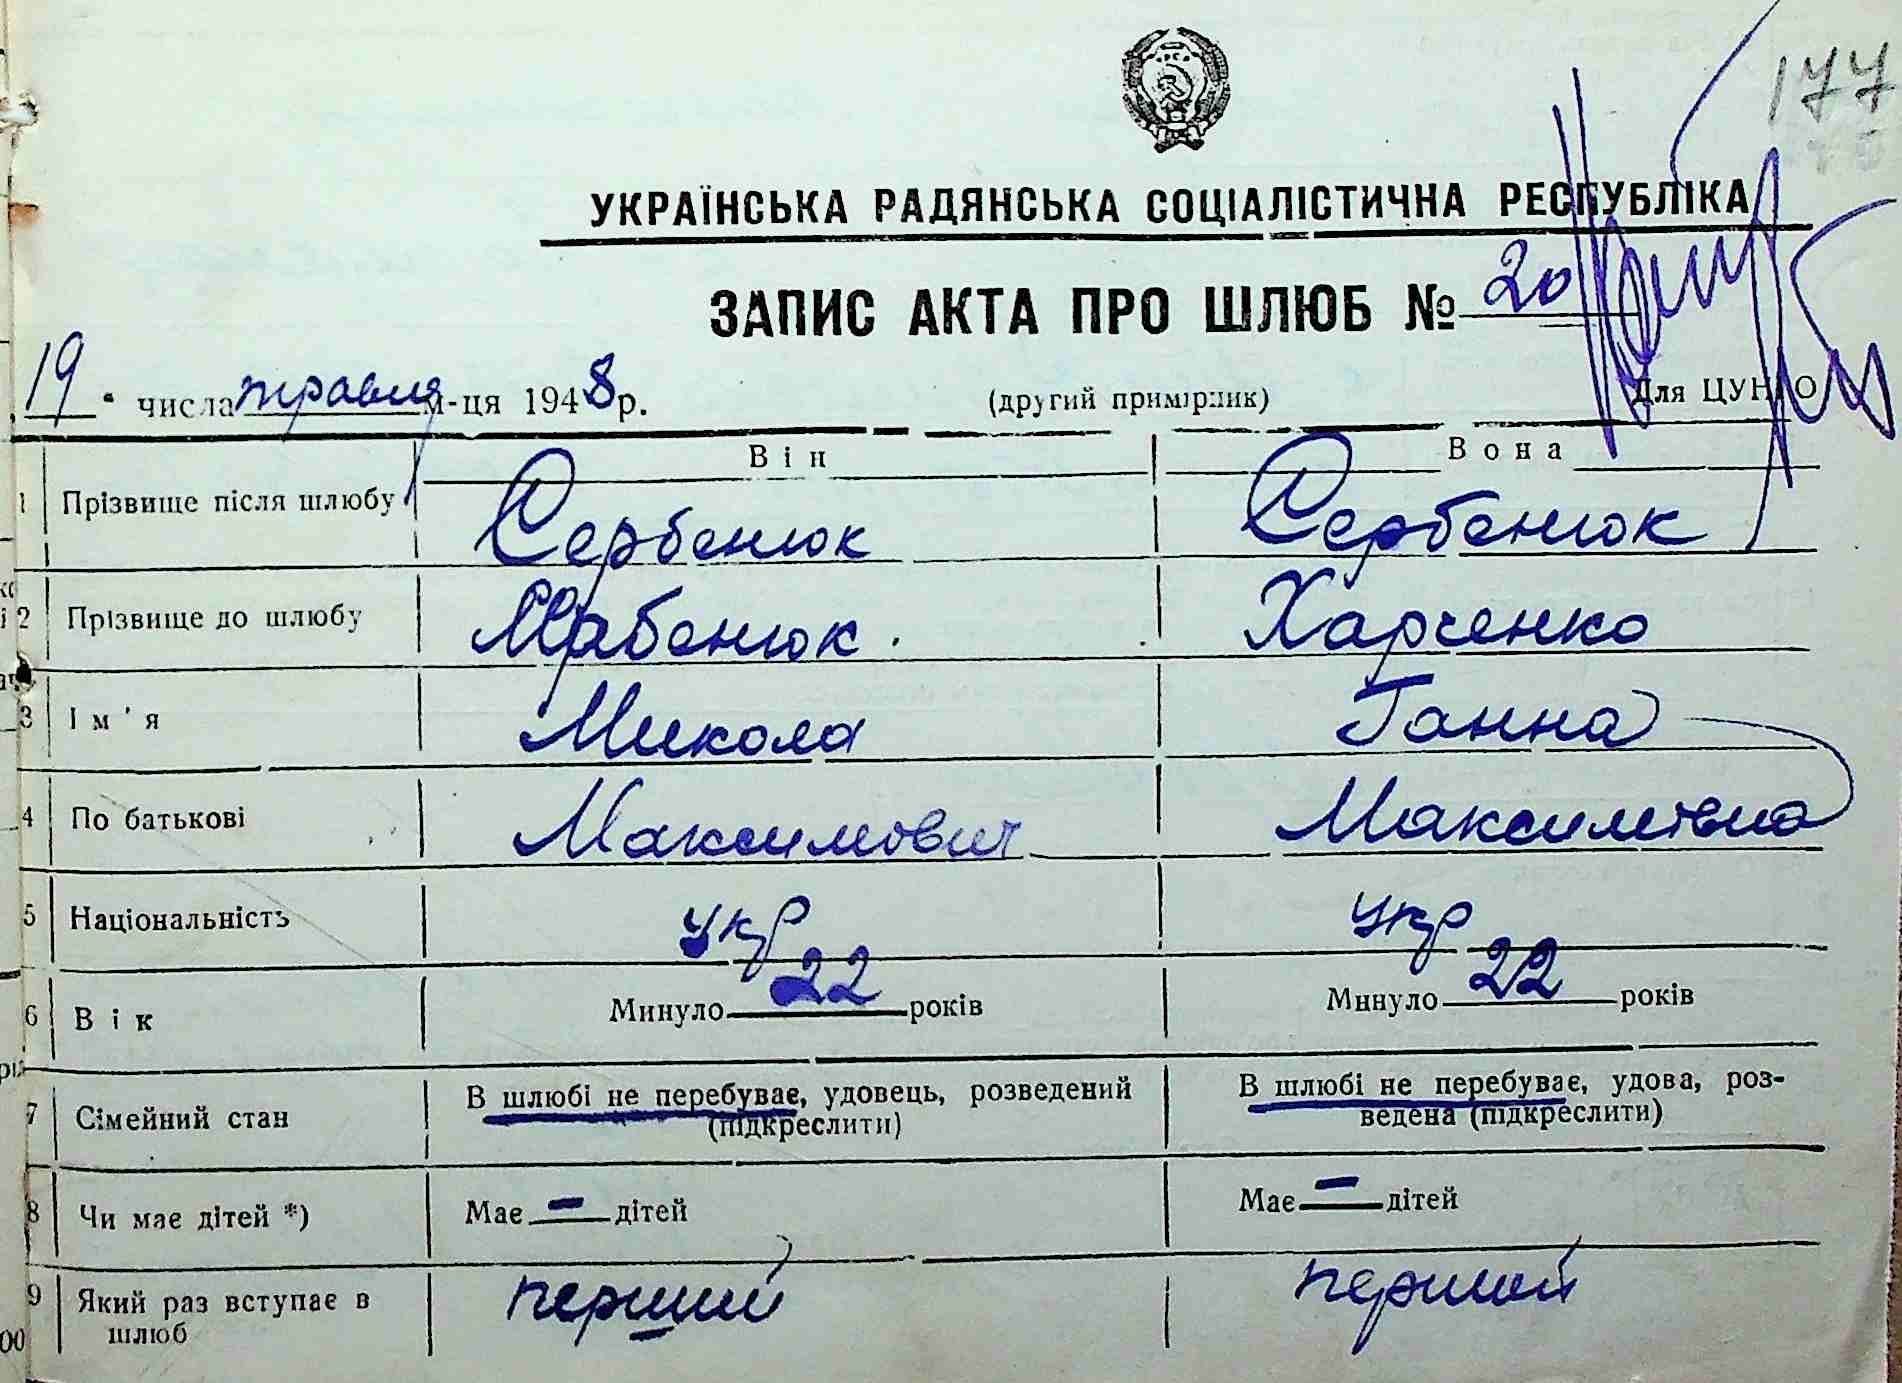 177
УКРАЇНСЬКА РАДЯНСЬКА СОЦІАЛІСТИЧНА РЕСПУБЛІКА
ЗАПИС АКТА ПРО ШЛЮБ № 20
19 числа травня м-ця 1948 р. (другий примірник) Для ЦУНГО
Він Вона
1 Прізвище після шлюбу Сербенюк Сербенюк
2 Прізвище до шлюбу Харченко
3 Ім'я Микола Ганна
4 По батькові Максимович Максимівна
5 Національність укр укр
6 Вік Минуло 22 років Минуло 22 років
7 Сімейний стан В шлюбі не перебуває, удовець, розведений (підкреслити) В шлюбі не перебуває, удова, роз-
ведена (підкреслити)
8 Чи має дітей *) Має — дітей Має — дітей
9 Який раз вступає в перший первий
шлюб